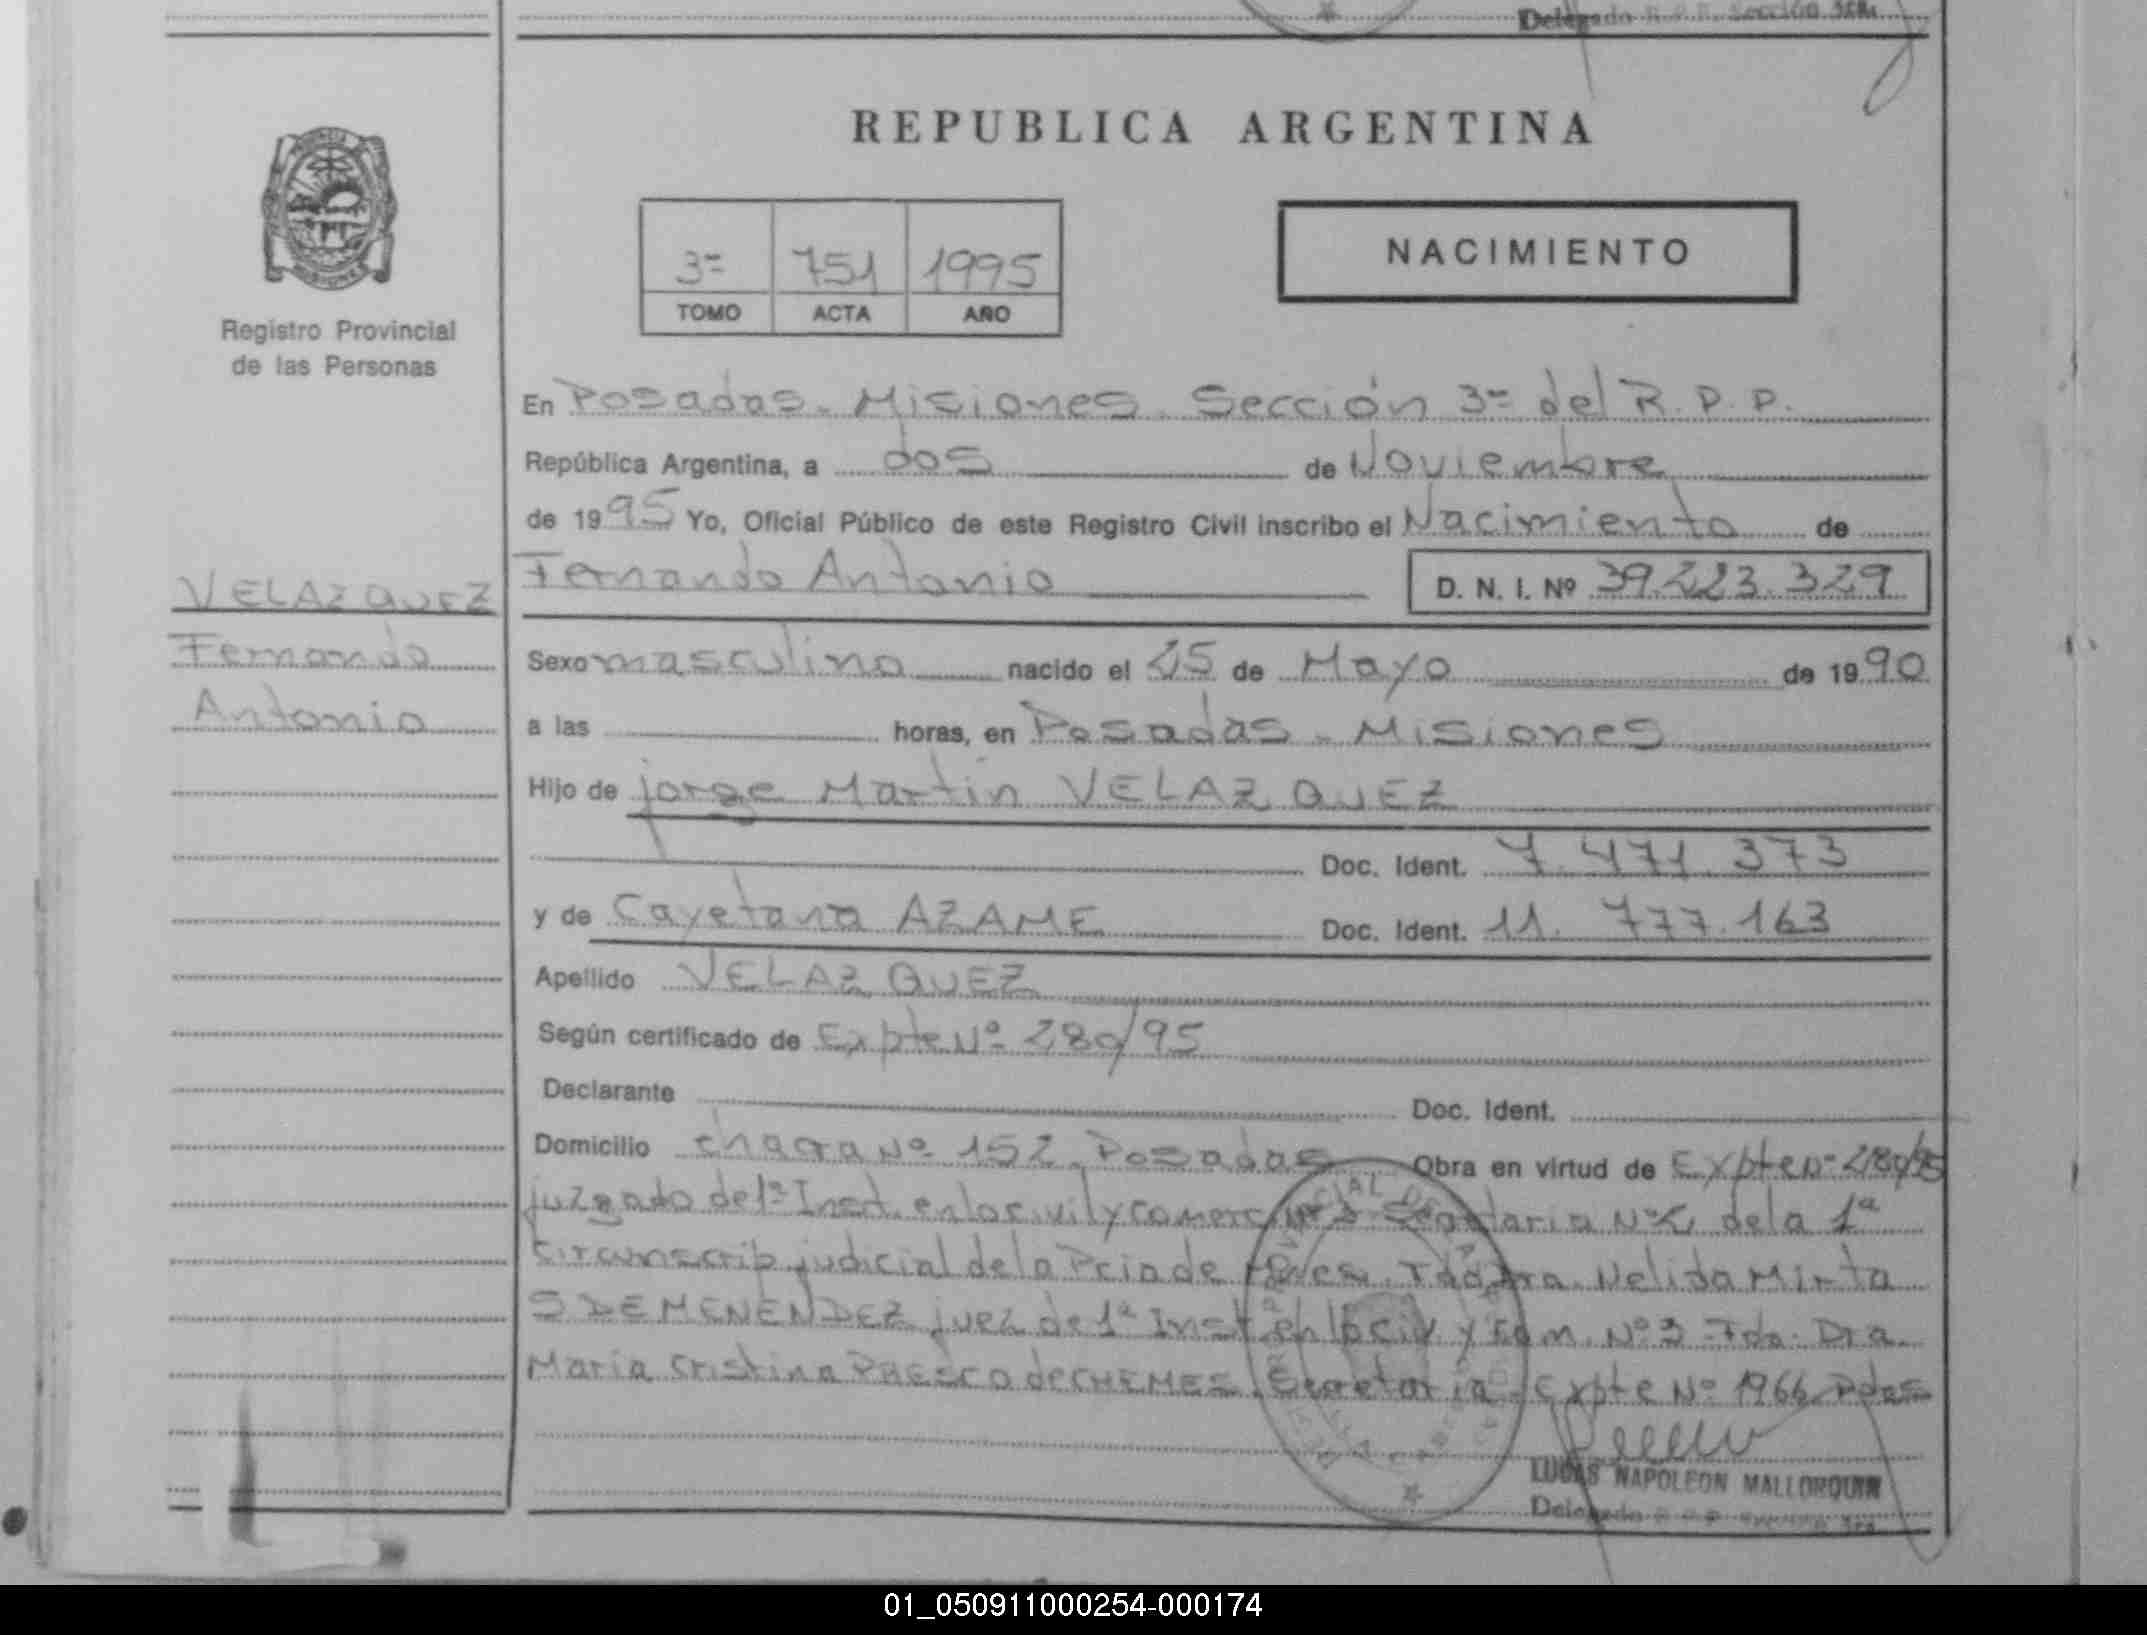 Delegado R.P.P. Sección 3ra.
REPUBLICA ARGENTINA
3ª 751 1995
TOMO ACTA AÑO
NACIMIENTO
Registro Provincial
de las Personas
En Posadas - Misiones. Sección 3ª del R.P.P.
República Argentina, a dos de Noviembre
de 1995 Yo, Oficial Público de este Registro Civil inscribo el Nacimiento de
VELAZQUEZ
Fernando Antonio D. N. I. Nº 39.223.329
Fernando
Antonio
Sexo masculino nacido el 25 de Mayo de 1990
a las horas, en Posadas - Misiones
Hijo de jorge Martin VELAZQUEZ
Doc. Ident. 7.471.373
y de Cayetana AZAME Doc. Ident. 11.777.163
Apellido VELAZQUEZ
Según certificado de Expte Nº 280/95
Declarante Doc. Ident.
Domicilio chacra Nº 152 Posadas Obra en virtud de Expte Nº 280/95
juzgado de 1ª Inst. en lo civil y comerc Nº 3 Secretaria Nº de la 1ª
circunscrip. judicial de la Pcia de Mnes. Fdo Dra. Nelida Mirta
S DE MENENDEZ juez de 1ª Inst. en lo civ. y com. Nº 3 Fdo. Dra.
Maria Cristina de CHEMES. Secretaria. Expte Nº 1966 Pdas
LUCAS NAPOLEON MALLORQUIN
Delegado R.P.P. Sección 3ra.
01_050911000254-000174